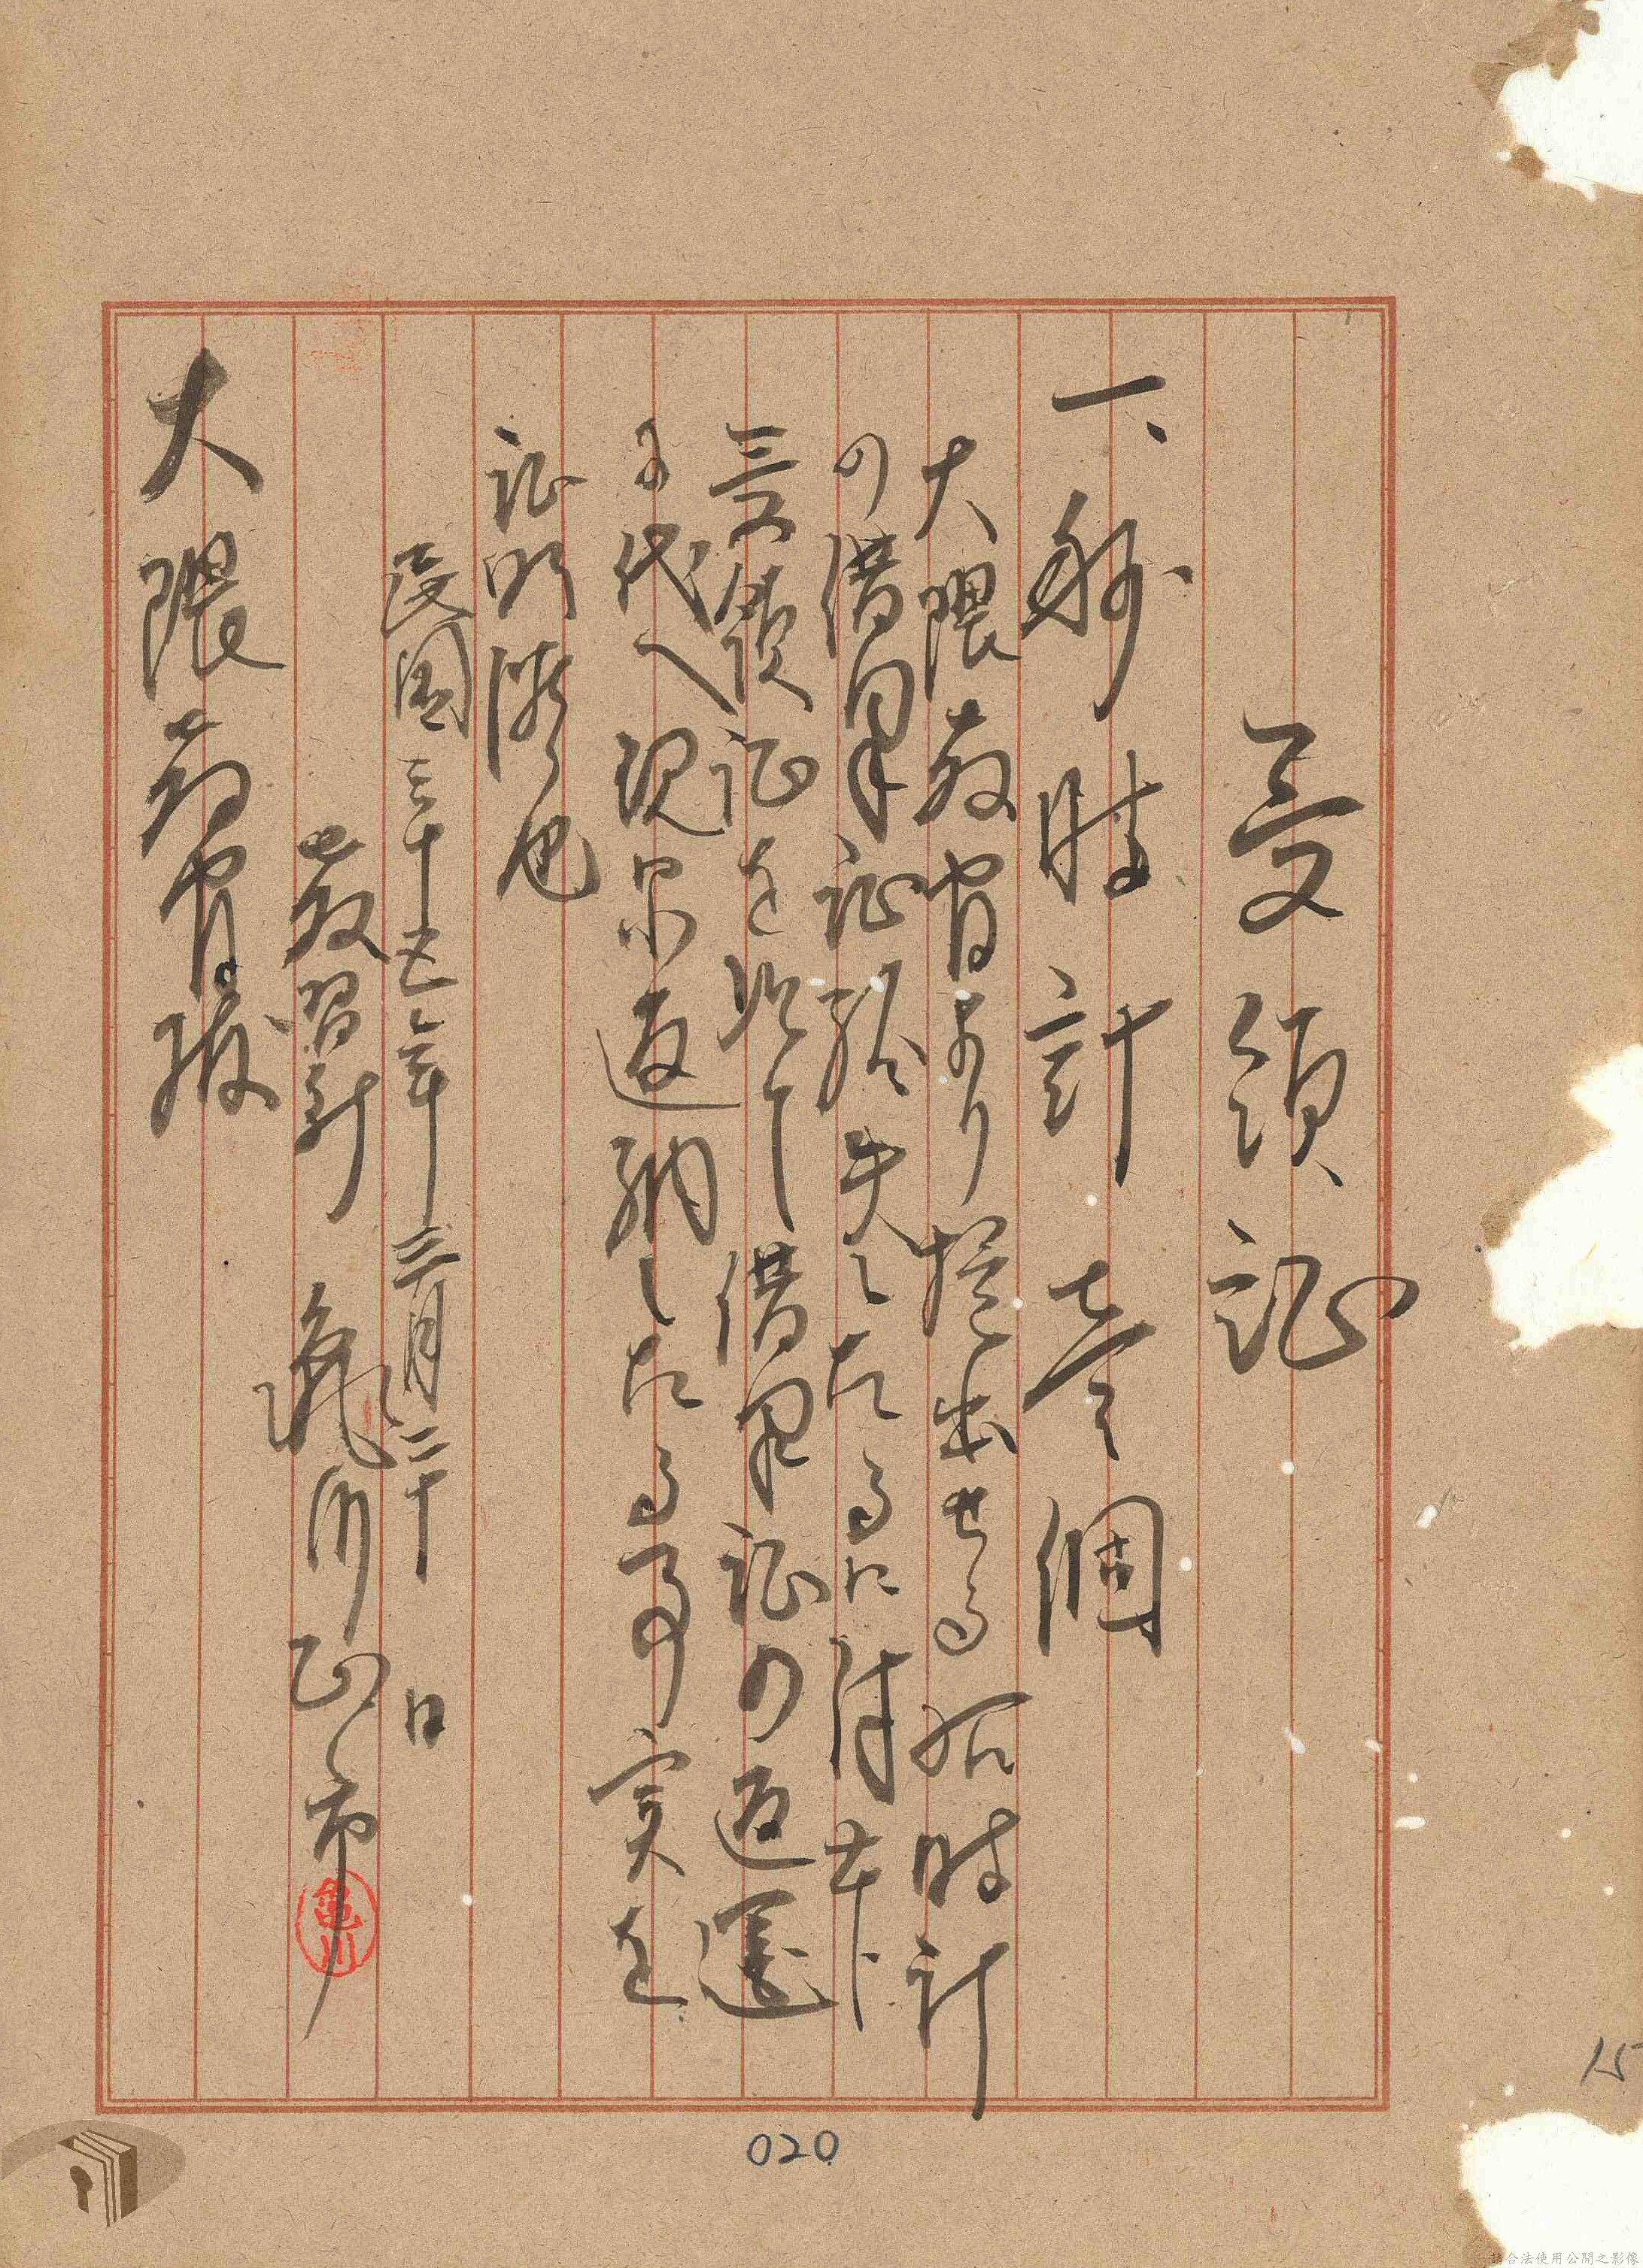 受領証
一、秒時計壹個
大隈教官より提出せる秒時計
の借用証紛失したるに付本
受領証を以て借用証の返還
に代へ現品返納したる事実を
証明候也
民国三十五年三月二十日
教習班 亀川正市
亀川
大隈教官殿
020
15
請合法使用公開之影像